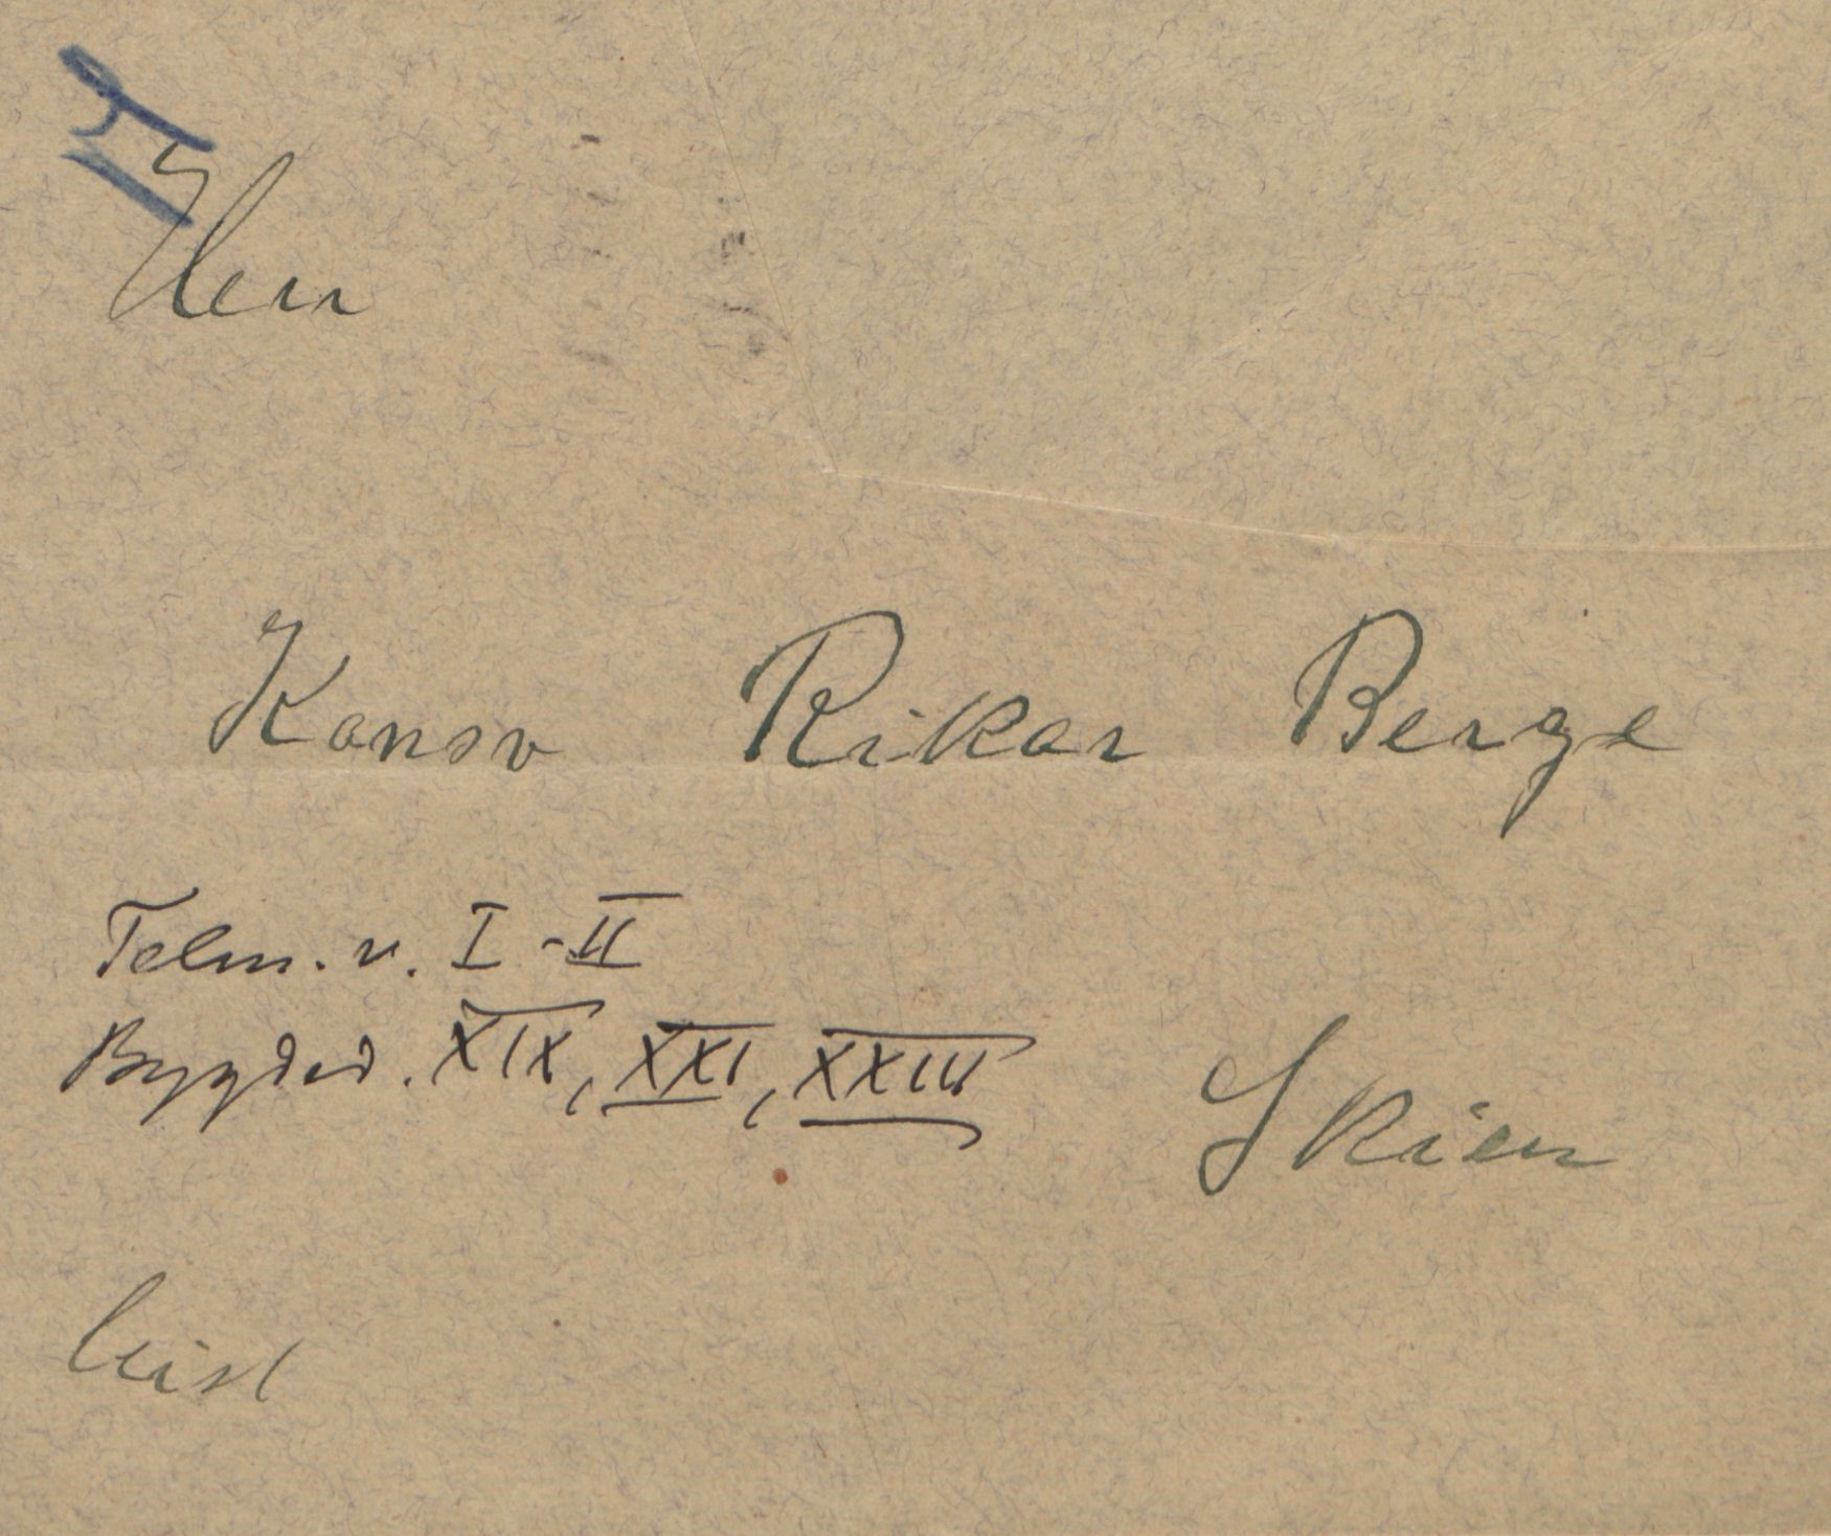 Herr
Konsv Rikar Berge
Telm. v. I-II
Bygded. XIX, XXI, XXIII
Skien